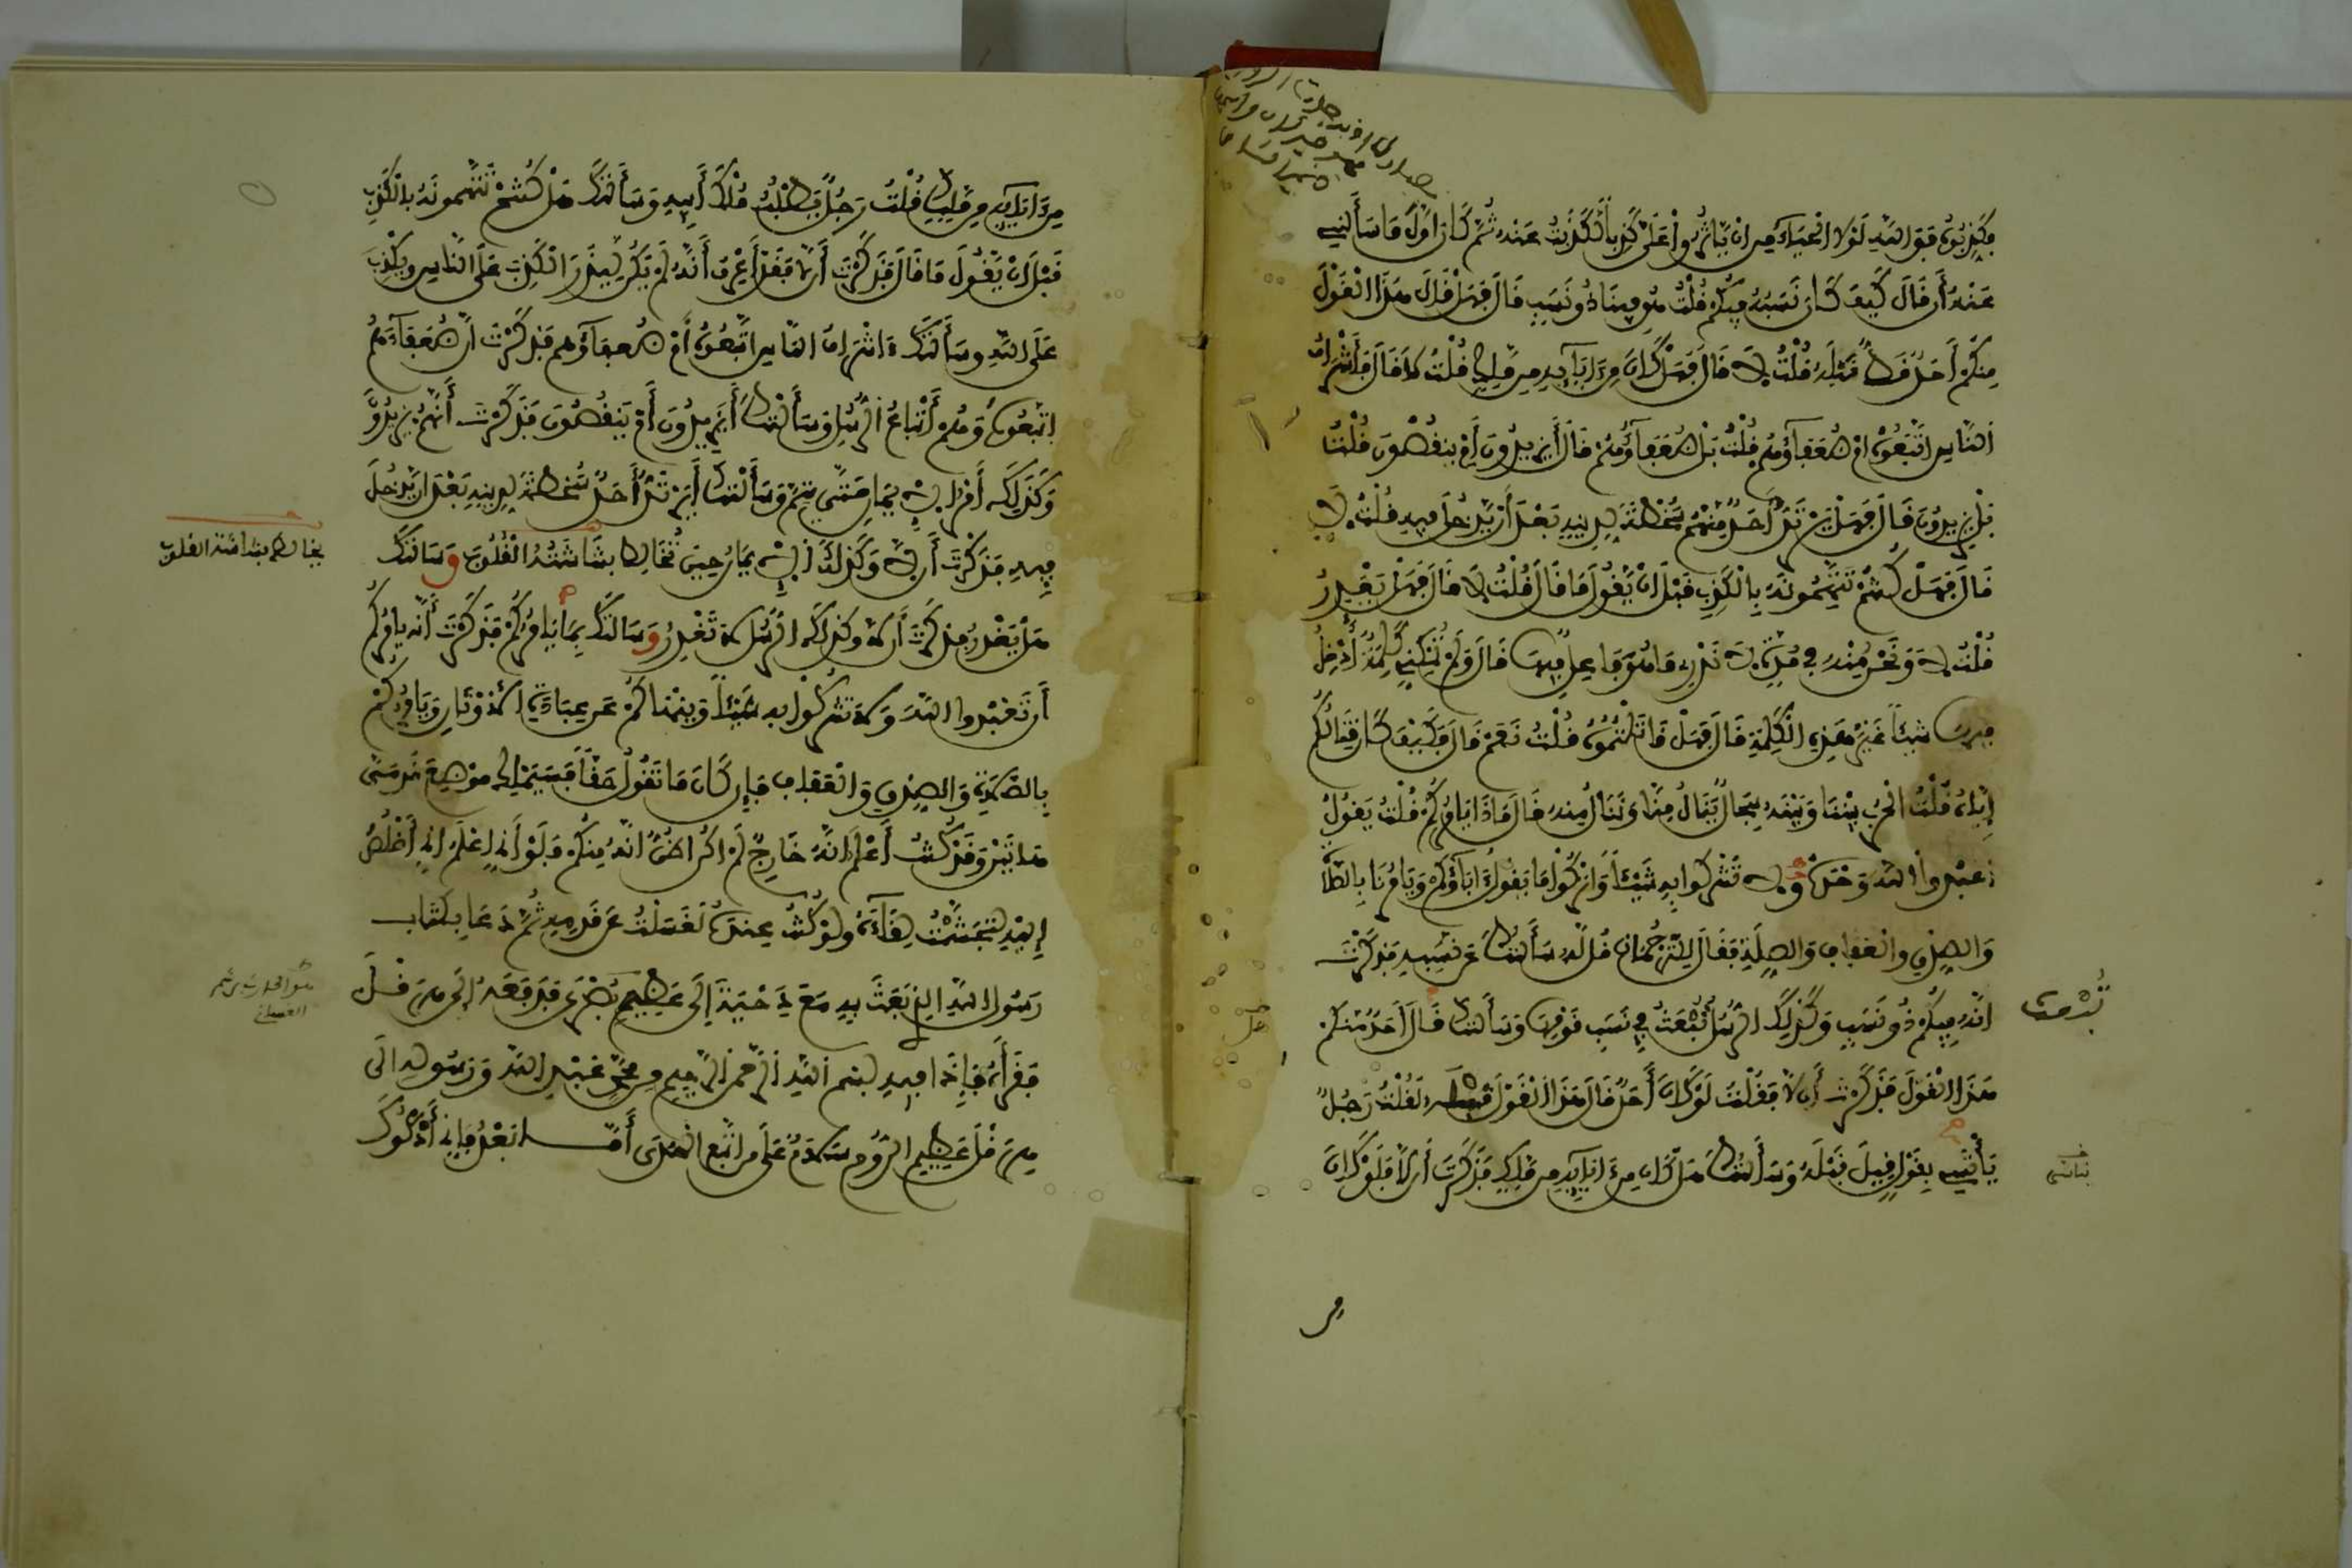 فكذبوه فوالله لولا الحياء من ان ياثروا على كذبا لكذبت عنه ثم كان اول ما سألني
عنه أن قال كيف كان نسبه فيكم قلت هو فينا ذو نسب قال فهل قال هذا القول
منكم أحد قط قبله قلت لا قال فهل كان من ءابآيه من ملك قلت لا قال فأشراف
الناس اتبعوه ام ضعفآؤهم قلت بل ضعفآؤهم قال أيزيدون أم ينقصون قلت
بل يزيدون قال فهل يرتد أحد منهم سخطة لدينه بعد أن يدخل فيه قلت لا
قال فهل كنتم تتهمونه بالكذب قبل ان يقول ما قال قلت لا قال فهل يغدر
قلت لا ونحن منه في مدة لا ندرى ما هو فاعل فيها قال ولم تمكنى كلمة أدخل
فيها شيئا غير هذه الكلمة قال فهل قاتلتموه قلت نعم قال فكيف كان قتالكم
إياه قلت الحرب بيننا وبينه سجال ينال منا وننال منه قال ماذا يامركم قلت يقول
اعبدوا الله وحده ولا تشركوا به شيئا واتركوا ما يقول ءاباؤكم ويامرنا بالصلاة
والصدق والعفاف والصلة فقال للترجمان قل له سألتك عن نسبه فذكرت
انه فيكم ذو نسب وكذلك الرسل تبعث في نسب قومها وسألتك قال أحد منكم
هذا القول فذكرت أن لا فقلت لو كان أحد قال هذا القول قبله لقلت رجل
يأتسي بقول قيل قبله وسألتك هل كان من ءابآيه من ملك فذكرت أن لا فلو كان
من ءابآيه من ملك قلت رجل يطلب ملك أبيه وسألتك هل كنتم تتهمونه بالكذب
قبل ان يقول ما قال فذكرت أن لا فقد أعرف أنه لم يكن ليذر الكذب على الناس ويكذب
على الله وسألتك ءاشراف الناس اتبعوه أم ضعفاؤهم فذكرت أن ضعفآءهم
اتبعوه وهم أتباع الرسل وسألتك أيزيدون أم ينقصون فذكرت أنهم يزيدون
وكذلك أمر الايمان حتى يتم وسألتك أيرتد أحد سخطة لدينه بعد ان يدخل
فيه فذكرت أن لا وكذلك الايمان حين تخالط بشاشته القلوب وسالتك
هل يغدر فذكرت أن لا وكذلك الرسل لا تغدر وسالتك بما يامركم فذكرت أنه يامركم
أن تعبدوا الله ولا تشركوا به شيئا وينهاكم عن عبادة الاوثان ويامركم
بالصلاة والصدق والعفاف فإن كان ما تقول حقا فسيملك موضع قدمى
هاتين وقد كنت أعلم انه خارج لم اكن اظن انه منكم فلو أني اعلم اني أخلص
إليه لتجشمت لقآءه ولو كنت عنده لغسلت عن قدميه ثم دعا بكتاب
رسول الله الذي بعث به مع دحية إلى عظيم بصرى فدفعه إلى هرقل
فقرأه فإذا فيه بسم الله الرحمن الرحيم من محمد عبد الله ورسوله الى
هرقل عظيم الروم سلام على من اتبع الهدى أما بعد فإني أدعوك
يخالط بشاشة القلوب